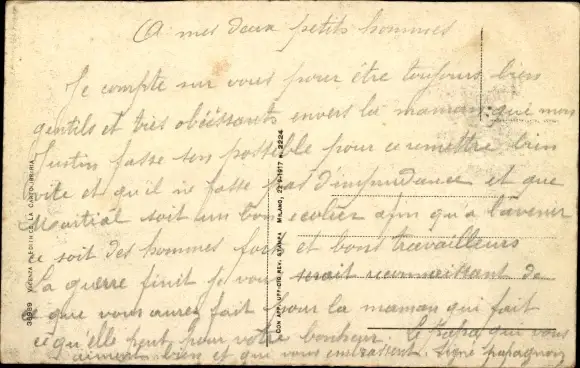 A mes deux petits hommes
Je compte sur vous pour être toujours bien
gentils et très obéissants envers la maman. que mon
Justin fasse son possible pour ce remettre bien
vite et qu'il ne fasse pas d'imprudance et que
Martial soit un bon ecolier afin qu'a l'avenir
ce soit des hommes forts et bons travailleurs
la guerre finit je vous serait reconnaissant de
que vous aurez fait pour la maman qui fait
ce qu'elle peut pour votre bonheur. le Papa qui vous
aiment bien et qui vous embrassent. Signé papagnon
CON APP. UFF. CIO REV. STAMPA MILANO, 22-1-1917 N. 2224